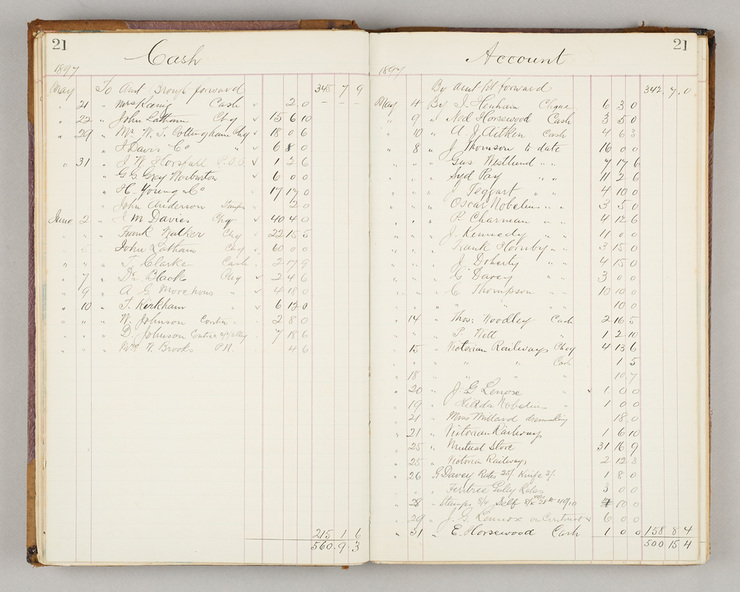 21
Cash
1897
May To Amt Brought forward 345 7 9
" 21 " Cash 2 0
" 22 " John Latham Chq 15 6 10
" 29 " Mr W. T. Cottingham Chq 18 0 6
" " J Davis & Co " 6 8 0
" 31 " J. W. Horsfall P.O.O. 1 2 6
" " G G Grey Warburton 6 0 0
" H. Young & Co 17 17 0
" John Anderson Stamps 2 0
June 2 " M Davies Chq 40 4 0
" " Frank Walker Chq 22 15 5
" " John Latham Chq 60 0 0
" " T. Clarke Cash 2 17 9
" 7 " Dr Black Chq 2 4 6
" 9 " A G " 4 18 0
" 10 " T. Kirkham 6 12 0
" " W Johnson 2 8 0
" " D Johnson 7 18 6
" " W Brooks P.N. 4 6
215 1 6
560 9 3
Account
21
1897
By Amt forward 342 7 0
May 4 By J. Chase 6 3 0
" 9 " Ned Horsewood Cash 3 5 0
" 10 " A J Aitken Cash 4 6 3
" 8 " J Thomson to date 16 0 0
" " Gus Westlund " " 7 17 6
" " Syd Ray " " 11 2 6
" " J Teggart " " 4 10 0
" " Oscar Nobelius " " 3 5 0
" " R Charman " " 4 12 6
" " J Kennedy " " 11 0 0
" " Frank Hornby " " 3 15 0
" " J Doherty " " 4 15 0
" " C Davey " " 3 0 0
" " C Thompson " " 10 10 0
" " " " 10 0
" 14 " Thos. Woodley Cash 2 16 5
" " L Nett " 1 2 10
" 15 " Victorian Railways Chq 4 13 6
" " " " Cash 1 5
" 18 " " " 10 7
" 20 " J G Lenox " 1 0 0
" 19 " Nobelius " 1 0 0
" 21 " 18 0
" 21 " Victorian Railways 1 6 10
" 25 " Mutual Store 31 16 9
" 25 " Victoria Railways 2 12 3
" 26 G Davey Knife 2/- 1 8 0
" " Ferntree Gully 3 0 0
" 28 " Stamps Self 10 0
" 29 " J G Lennox on Contract 6 0 0
" 31 " E. Horsewood Cash 1 0 0 158 8 4
500 15 4